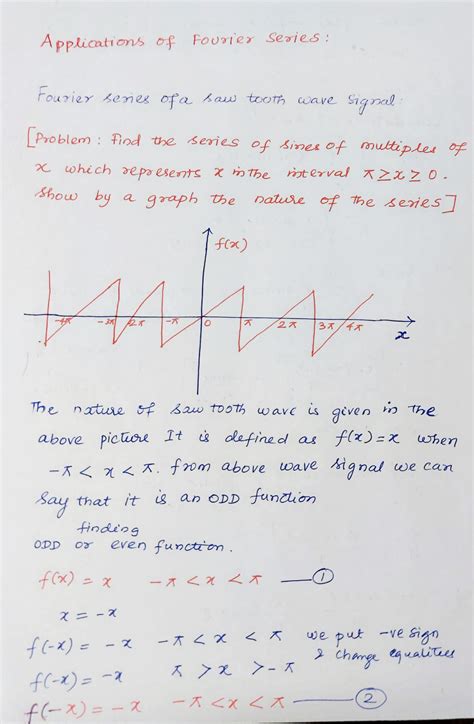 Applications of Fourier Series:
Fourier series of a saw tooth wave signal:
[Problem: Find the series of sines of multiples of
x which represents x in the interval π ≥ x ≥ 0.
Show by a graph the nature of the series]
f(x)
-4π -3π 2π -π 0 π 2π 3π 4π
x
The nature of saw tooth wave is given in the
above picture It is defined as f(x) = x when
-π < x < π. from above wave signal we can
say that it is an ODD function
finding
ODD or even function.
f(x) = x -π < x < π —①
x = -x
f(-x) = -x -π < x < π we put -ve sign
f(-x) = -x π > x > -π & change equalities
f(-x) = -x -π < x < π —②